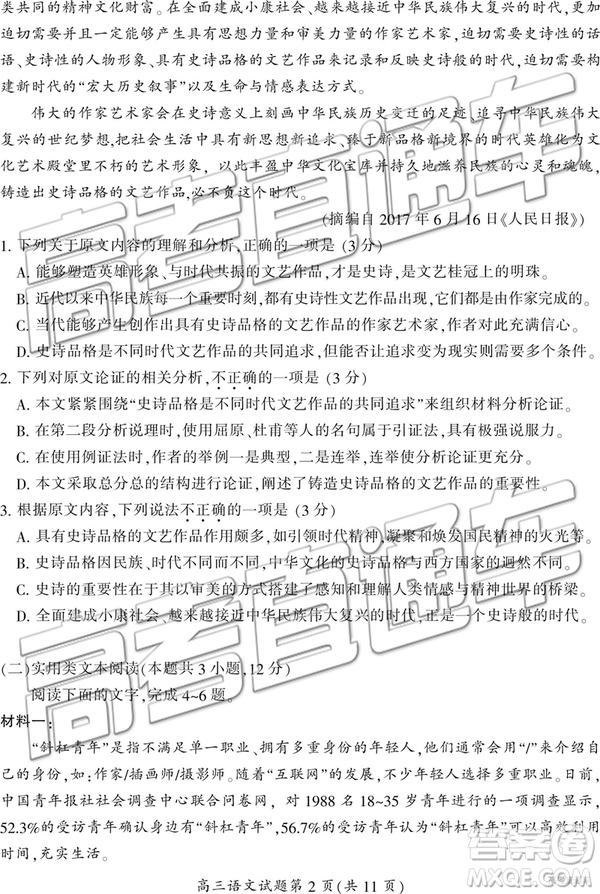 类共同的精神文化财富。在全面建成小康社会、越来越接近中华民族伟大复兴的时代,更加
迫切需要并且一定能够产生有思想力量和审美力量的作家艺术家,迫切需要史诗性的话
语、史诗性的人物形象、具有史诗品格的文艺作品来记录和反映史诗般的时代,迫切需要构
建新时代的“宏大历史叙事”以及生命与情感表达方式。
伟大的作家艺术家会在史诗意义上刻画中华民族历史变迁的足迹、追寻中华民族伟大
复兴的世纪梦想,把社会生活中具有新思想新追求、臻于新品格新境界的时代英雄化为文
化艺术殿堂里不朽的艺术形象,以此丰盈中华文化宝库并持久地滋养民族的心灵和魂魄,
铸造出史诗品格的文艺作品,必不负这个时代。
(摘编自 2017 年 6 月 16 日《人民日报》)
1. 下列关于原文内容的理解和分析,正确的一项是 (3 分)
A. 能够塑造英雄形象、与时代共振的文艺作品,才是史诗,是文艺桂冠上的明珠。
B. 近代以来中华民族每一个重要时刻,都有史诗性文艺作品出现,它们都是由作家完成的。
C. 当代能够产生创作出具有史诗品格的文艺作品的作家艺术家,作者对此充满信心。
D. 史诗品格是不同时代文艺作品的共同追求,但可以凭借一定的史诗题材实现。
2. 下列对原文论证的相关分析,不正确的一项是 (3 分)
A. 本文紧紧围绕“史诗品格是不同时代文艺作品的共同追求”来组织材料分析论证。
B. 在第二段分析说理时,使用屈原、杜甫等人的名句属于引证法,具有极强说服力。
C. 在使用例证法时,作者的举例一是典型,二是连举,连举进一步加强了论证力量。
D. 本文采取总分总的结构进行论证,阐述了铸造史诗品格的文艺作品的重要意义。
3. 根据原文内容,下列说法不正确的一项是 (3 分)
A. 具有史诗品格的文艺作品作用颇多,如引领时代精神,凝聚和焕发国民精神的火光等。
B. 史诗品格因民族、时代不同而不同,中华文化的史诗品格与西方国家的迥然不同。
C. 史诗的重要性在于其以审美的方式搭建了感知和理解人类情感与精神世界的桥梁。
D. 全面建成小康社会、越来越接近中华民族伟大复兴的时代,正是一个史诗般的时代。
(二)实用类文本阅读(本题共 3 小题,12 分)
阅读下面的文字,完成 4~6 题。
材料一:
“斜杠青年”是指不满足单一职业、拥有多重身份的年轻人,他们通常会用“/”来介绍自
己的身份,如:作家/插画师/摄影师。随着“互联网”的发展,不少年轻人选择多重职业。日前,
中国青年报社社会调查中心联合问卷网,对 1988 名 18~35 岁青年进行的一项调查显示,
52.3%的受访青年确认身边有“斜杠青年”,56.7%的受访青年认为“斜杠青年”可以充实业余时
间,充实生活。
高三语文试题第 2 页(共 11 页)
高考直通车
高考直通车
高考直通车